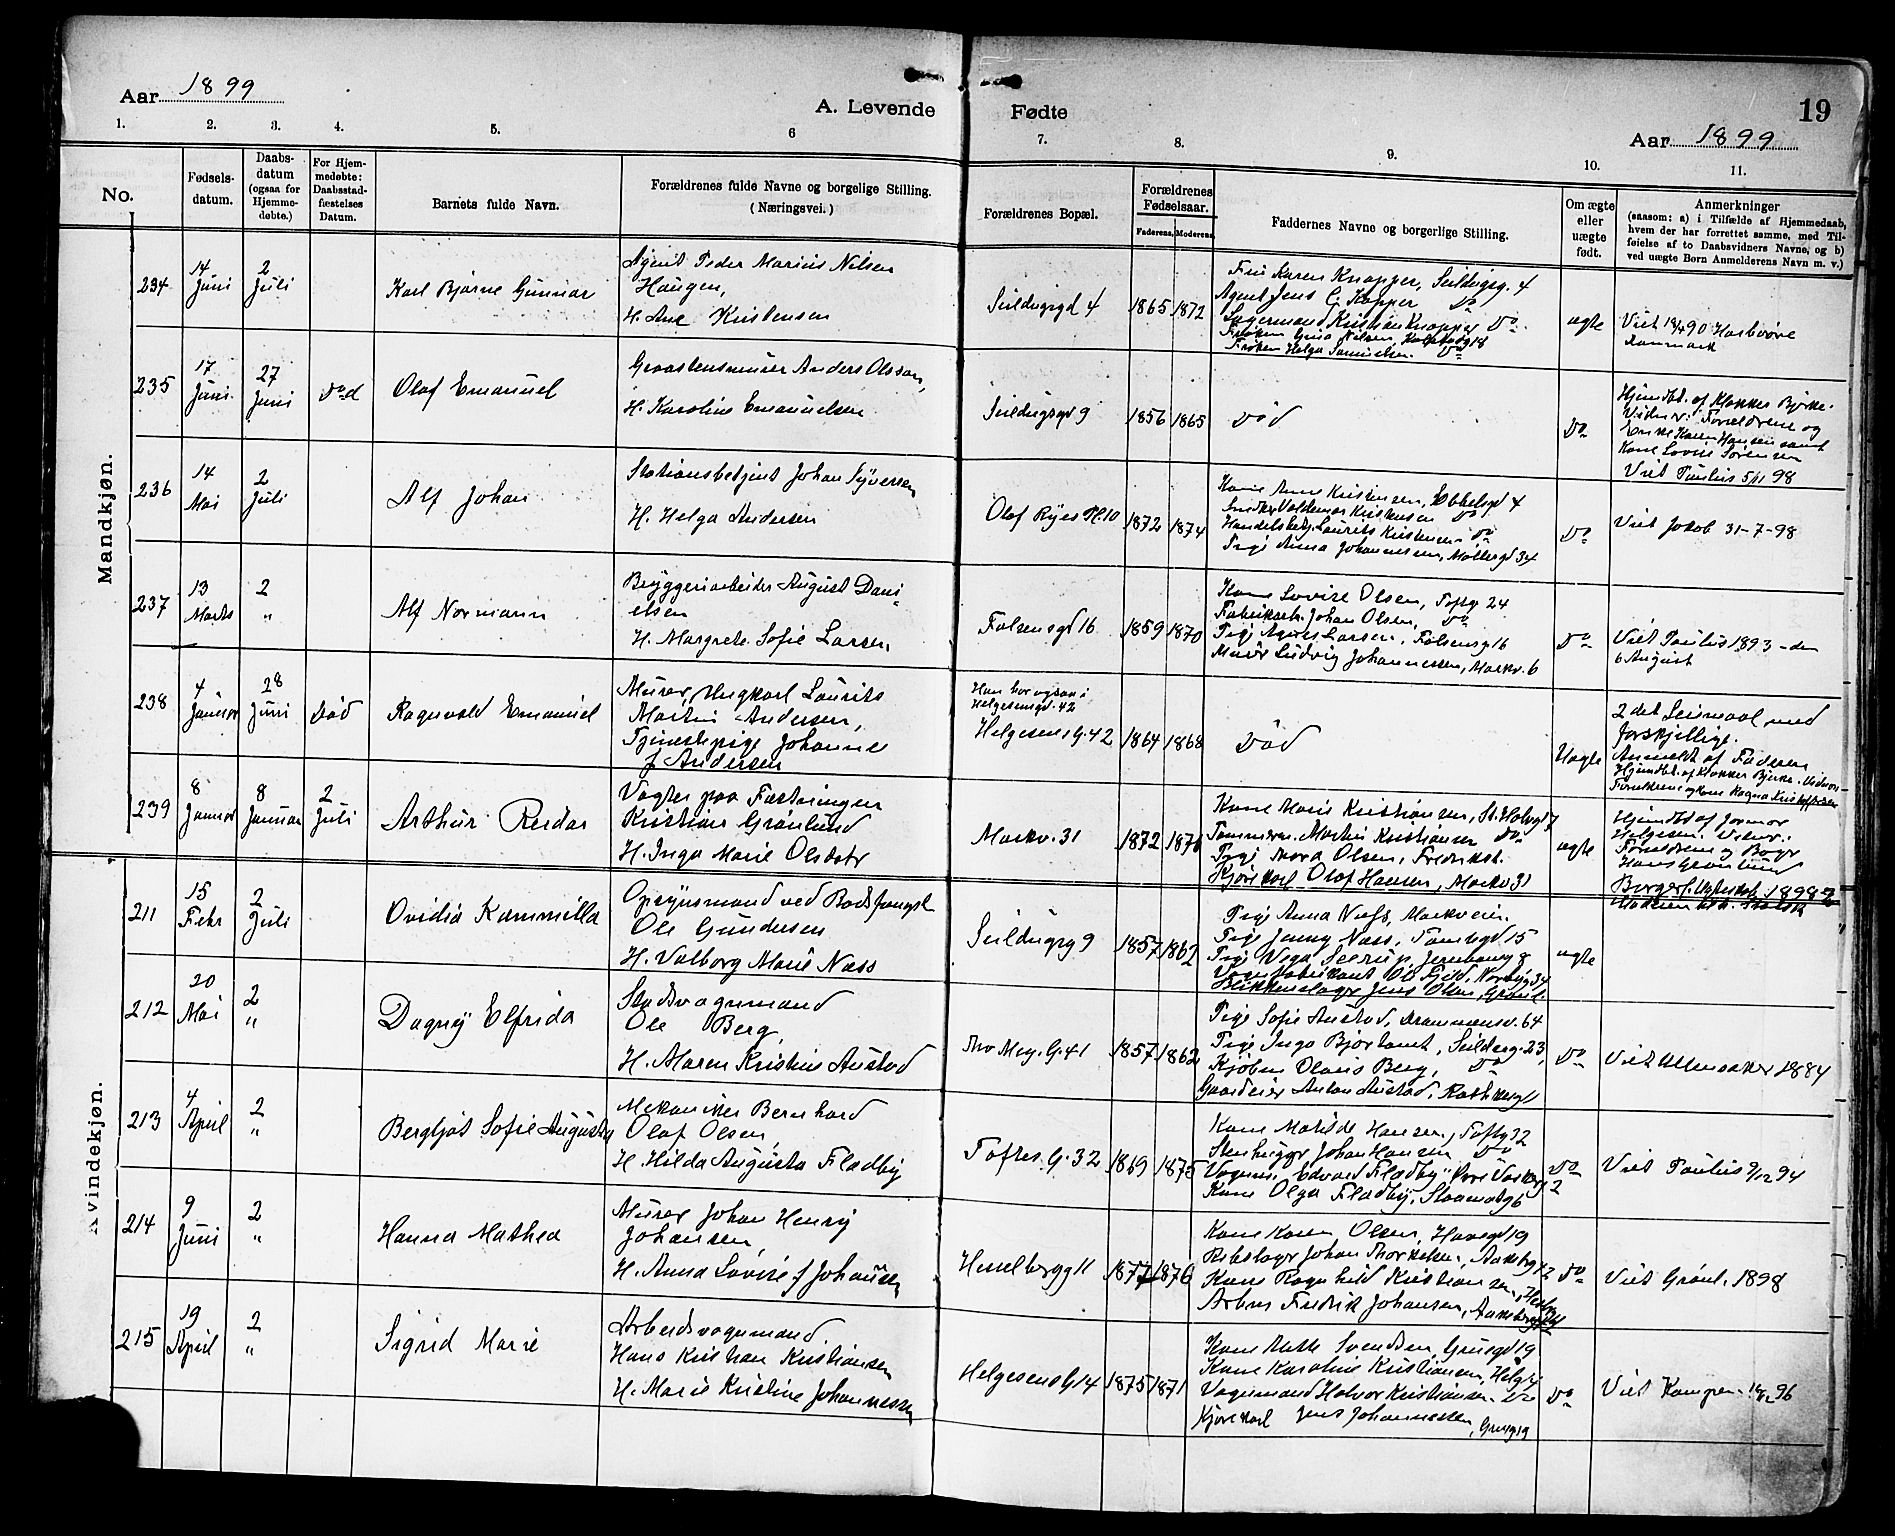 Aar 1899
A. Levende
Fødte
19
Aar 1899
1. 2. 3. 4. 5. 6 7. 8. 9. 10. 11.
No.
Fødsels-
datum.
Daabs-
datum
(ogsaa for
Hjemme-
døbte.)
For Hjem-
medøbte:
Daabsstad-
fæstelses
Datum.
Barnets fulde Navn.
Forældrenes fulde Navne og borgelige Stilling.
(Næringsvei.)
Forældrenes Bopæl.
Forældrenes
Fødselsaar.
Faderens. Moderens.
Faddernes Navne og borgerlige Stilling.
Om ægte
eller
uægte
født.
Anmerkninger
(saasom: a) i Tilfælde af Hjemmedaab,
hvem der har forrettet samme, med Til-
føielse af to Daabsvidners Navne, og b)
ved uægte Børn Anmelderens Navn m. v.)
Mandkjøn.
234
14
Juni
2
Juli
Karl Bjarne Gunnar
Agent Peder Marius Nilsen
Haugen,
H. Ane Kristensen
Seildugsgd 4
1865 1872
Fru Karen Knapper, Seildugsg. 4
Agent Jens C. Knapper Do
Lagermand Kristian Knapper Do
Frøken Gina Nilsen,
Frøken Helga Samuelsen. Do
ægte
Danmark
235
17
Juni.
27
Juni
Død
Olaf Emanuel
Graastensmurer Anders Olsson,
H. Karoline Emanuelsen
Seildugsgd 9
1856 1865
Død
Do
Hjemdbt. af Klokker Bjerke.
Vidner: Forældrene og
Enke Karen Hansen samt
Kone Lovise Sørensen
Viet Paulus 5/11 98
236
14
Mai
2
Juli
Alf Johan
Stationsbetjent Johan Syversen
H. Helga Andersen
Olaf Ryes Pl. 10
1872 1874
Kone Anna Kristensen, Ebbelsgd 4
Snedker Valdemar Kristensen Do
Handelsbetj. Laurits Kristensen Do
Pige Anna Johannesen, Møllergd 34
Do
Viet Jakob 31-7-98
237
13
Marts
2
"
Alf Normann
Bryggeriarbeider August Dani-
elsen
H. Margrete Sofie Larsen
Falsensgd 16
1859 1870
Kone Lovise Olsen, Toftg 24
Fabrikarb. Johan Olsen, Do
Pige Agnes Larsen, Falsensg 16
Murer Ludvig Johannessen, Markv. 6
Do
Viet Paulus 1893 - den
6 August
238
4
Januar
28
Juni
Død
Ragnvald Emanuel
Murer, Ungkarl Laurits
Martin Andersen,
Tjenestepige Johanne
f Andersen
Han bor ogsaa i
Helgesensgd. 42
Helgesens G. 42
1864 1868
Død
Uægte
2 det Leiermaal med
forskjellige.
Anmeldt af Faderen
Hjemdbt. af Klokker Bjerke. Vidner:
Forældrene og Kone Ragna Kristoffersen
239
8
Januar
8
Januar
2
Juli
Arthur Reidar
Vagter paa Fæstningen
Kristian Grønlund
H. Inga Marie Olsdatr
Markv. 31
1872 1876
Kone Marie Kristiansen, St. Halvgd 7
Tømmerm. Martin Kristiansen Do
Pige Thora Olsen, Fredrikst.
Kjørekarl Olaf Hansen, Markv 31
ægte
Hjemdbt af Jormor
Helgesen. Vidner:
Forældrene og Bager
Hans Grønlund
Kvindekjøn.
211
15
Febr
2
Juli
Ovidia Kammilla
Opsynsmand ved Bodsfængsl.
Ole Gundersen
H. Valborg Marie Næss
Seildugsg 9
1857 1862
Pige Anna Næss, Markveien.
Pige Jenny Næss, Tomtegd. 15
Pige Vega
ægte
212
20
Mai
2
"
Dagny Elfrida
Stadsvognmand
Ole Berg,
H. Maren Kristine Austad
Thv Mey. G. 41
1857 1862
Pige Sofie Austad, Drammensv. 64
Pige Inga Bjørlamt, Seildsg. 23,
Kjøbm Olaus Berg, Do
Gaardeier Anton Austad, Rathkesg 11
Do
Viet Ullensaker 1884
213
4
April
2
"
Bergljot Sofie Augusta
Mekaniker Bernhard
Olaf Olsen,
H. Hilda Augusta Fladby
Toftes. G. 32
1869 1875
Kone Matilde Hansen, Toftg 32
Stenhugger Johan Hansen Do
Kone Olga Fladby,
Do
Viet Paulus 9/12 94
214
9
Juni
2
"
Hanna Mathea
Murer Johan Henry
Johansen,
H. Anna Lovise f Johansen
Hesselbergg 11
1877 1876
Kone Karen Olsen, Havegd 19
Rebslager Johan Thorkelsen,
Kone Ragnhild Kristiansen,
Arbm Fredrik Johansen,
Do
Viet Grønl. 1898
215
19
April
2
"
Sigrid Marie
Arbeidsvognmand.
Hans Kristian Kristiansen
H. Marie Kristine Johannessen
Helgesens G 14
1875 1871
Kone Mette Svendsen, Grusgd 19
Kone Karoline Kristiansen, Helg.
Vognmand Halvor Kristiansen. Do
Kjørekarl Jens Johannessen, Grusg 19
Do
Viet Kampen 96